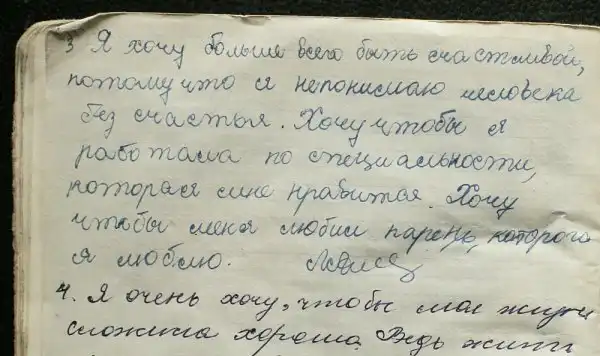 3 Я хочу больше всего быть счастливой,
потому что я непонимаю человека
без счастья. Хочу чтобы я
работала по специальности,
которая мне нравится. Хочу
чтобы меня любил парень, которого
я люблю.
4. Я очень хочу, чтобы моя жизнь
сложилась хорошо. Ведь жизнь